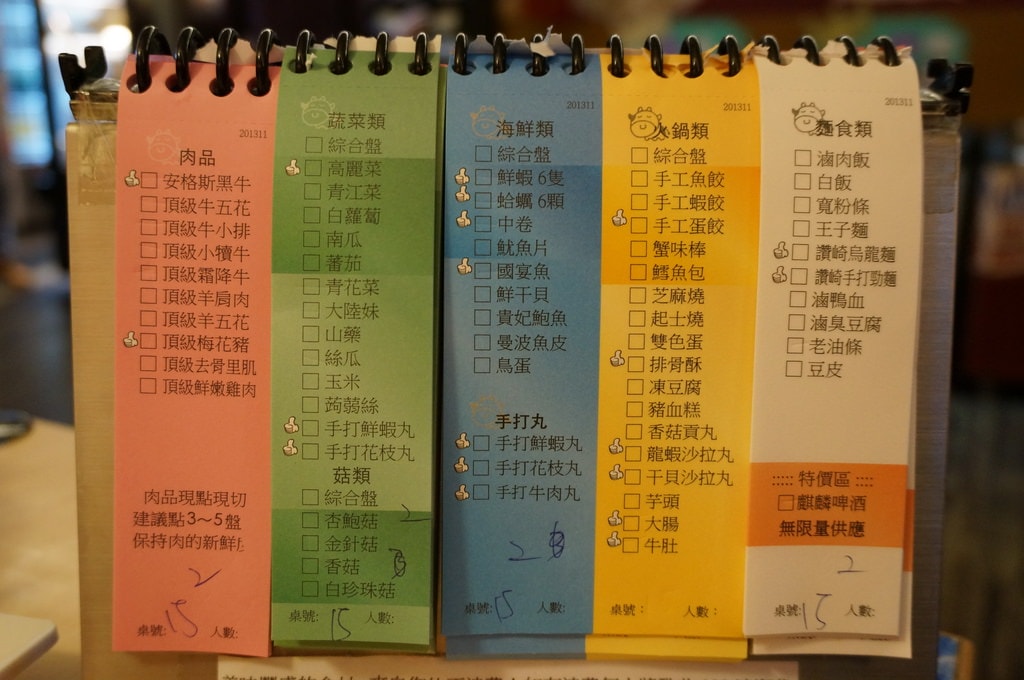 201311
肉品
安格斯黑牛
頂級牛五花
頂級牛小排
頂級小犢牛
頂級霜降牛
頂級羊肩肉
頂級羊五花
頂級梅花豬
頂級去骨里肌
頂級鮮嫩雞肉
肉品現點現切
建議點3～5盤
保持肉的新鮮!
2
桌號: 15 人數:
蔬菜類
綜合盤
高麗菜
青江菜
白蘿蔔
南瓜
蕃茄
青花菜
大陸妹
山藥
絲瓜
玉米
蒟蒻絲
手打鮮蝦丸
手打花枝丸
菇類
綜合盤
杏鮑菇 2
金針菇
香菇
白珍珠菇
桌號: 15 人數:
201311
海鮮類
綜合盤
鮮蝦 6隻
蛤蠣 6顆
中卷
魷魚片
國宴魚
鮮干貝
貴妃鮑魚
曼波魚皮
鳥蛋
手打丸
手打鮮蝦丸
手打花枝丸
手打牛肉丸
2
桌號: 15 人數:
201311
火鍋類
綜合盤
手工魚餃
手工蝦餃
手工蛋餃
蟹味棒
鱈魚包
芝麻燒
起士燒
雙色蛋
排骨酥
凍豆腐
豬血糕
香菇貢丸
龍蝦沙拉丸
干貝沙拉丸
芋頭
大腸
牛肚
桌號： 人數：
201311
麵食類
滷肉飯
白飯
寬粉條
王子麵
讚崎烏龍麵
讚崎手打勁麵
滷鴨血
滷臭豆腐
老油條
豆皮
::::: 特價區 ::::
麒麟啤酒
無限量供應
2
桌號: 15 人數: